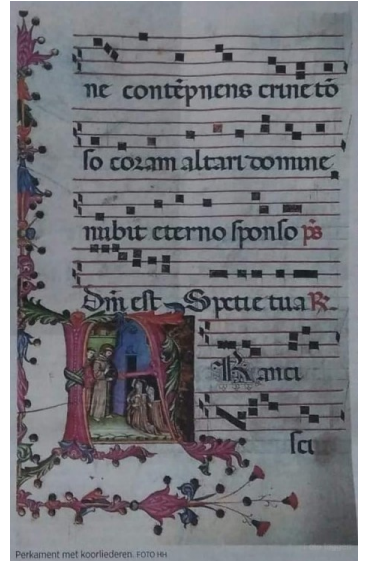 ne contēpnens crine tō
so coram altari domine
nubit eterno sponso p̄s
Dm̄ est Spetie tua R.
anci
sci
Perkament met koorliederen. FOTO HH